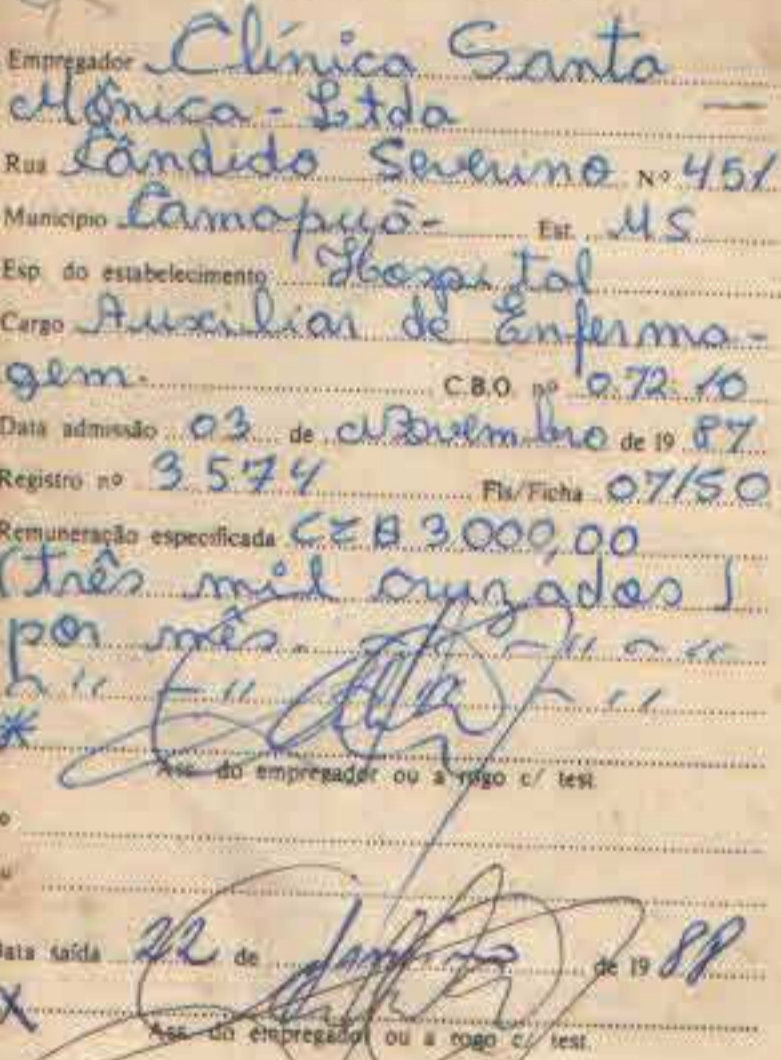 Empregador Clínica Santa
Mônica - Ltda
Rua Cândido Severino Nº 451
Município Camapuã - Est. MS
Esp. do estabelecimento Hospital
Cargo Auxiliar de Enferma-
gem. C.B.O. nº 0.72.10
Data admissão 03 de Novembro de 19 87
Registro nº 3574 Fls/Ficha 07/50
Remuneração especificada CZ$ 3000,00
(três mil cruzados)
por mês. - " - "
- " - " - "
*
Ass. do empregador ou a rogo c/ test.
Data saída 22 de Janeiro de 19 88
X
Ass. do empregador ou a rogo c/ test.